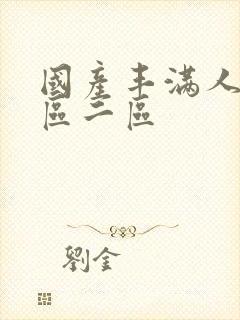 國產丰滿人
區二區
劉金